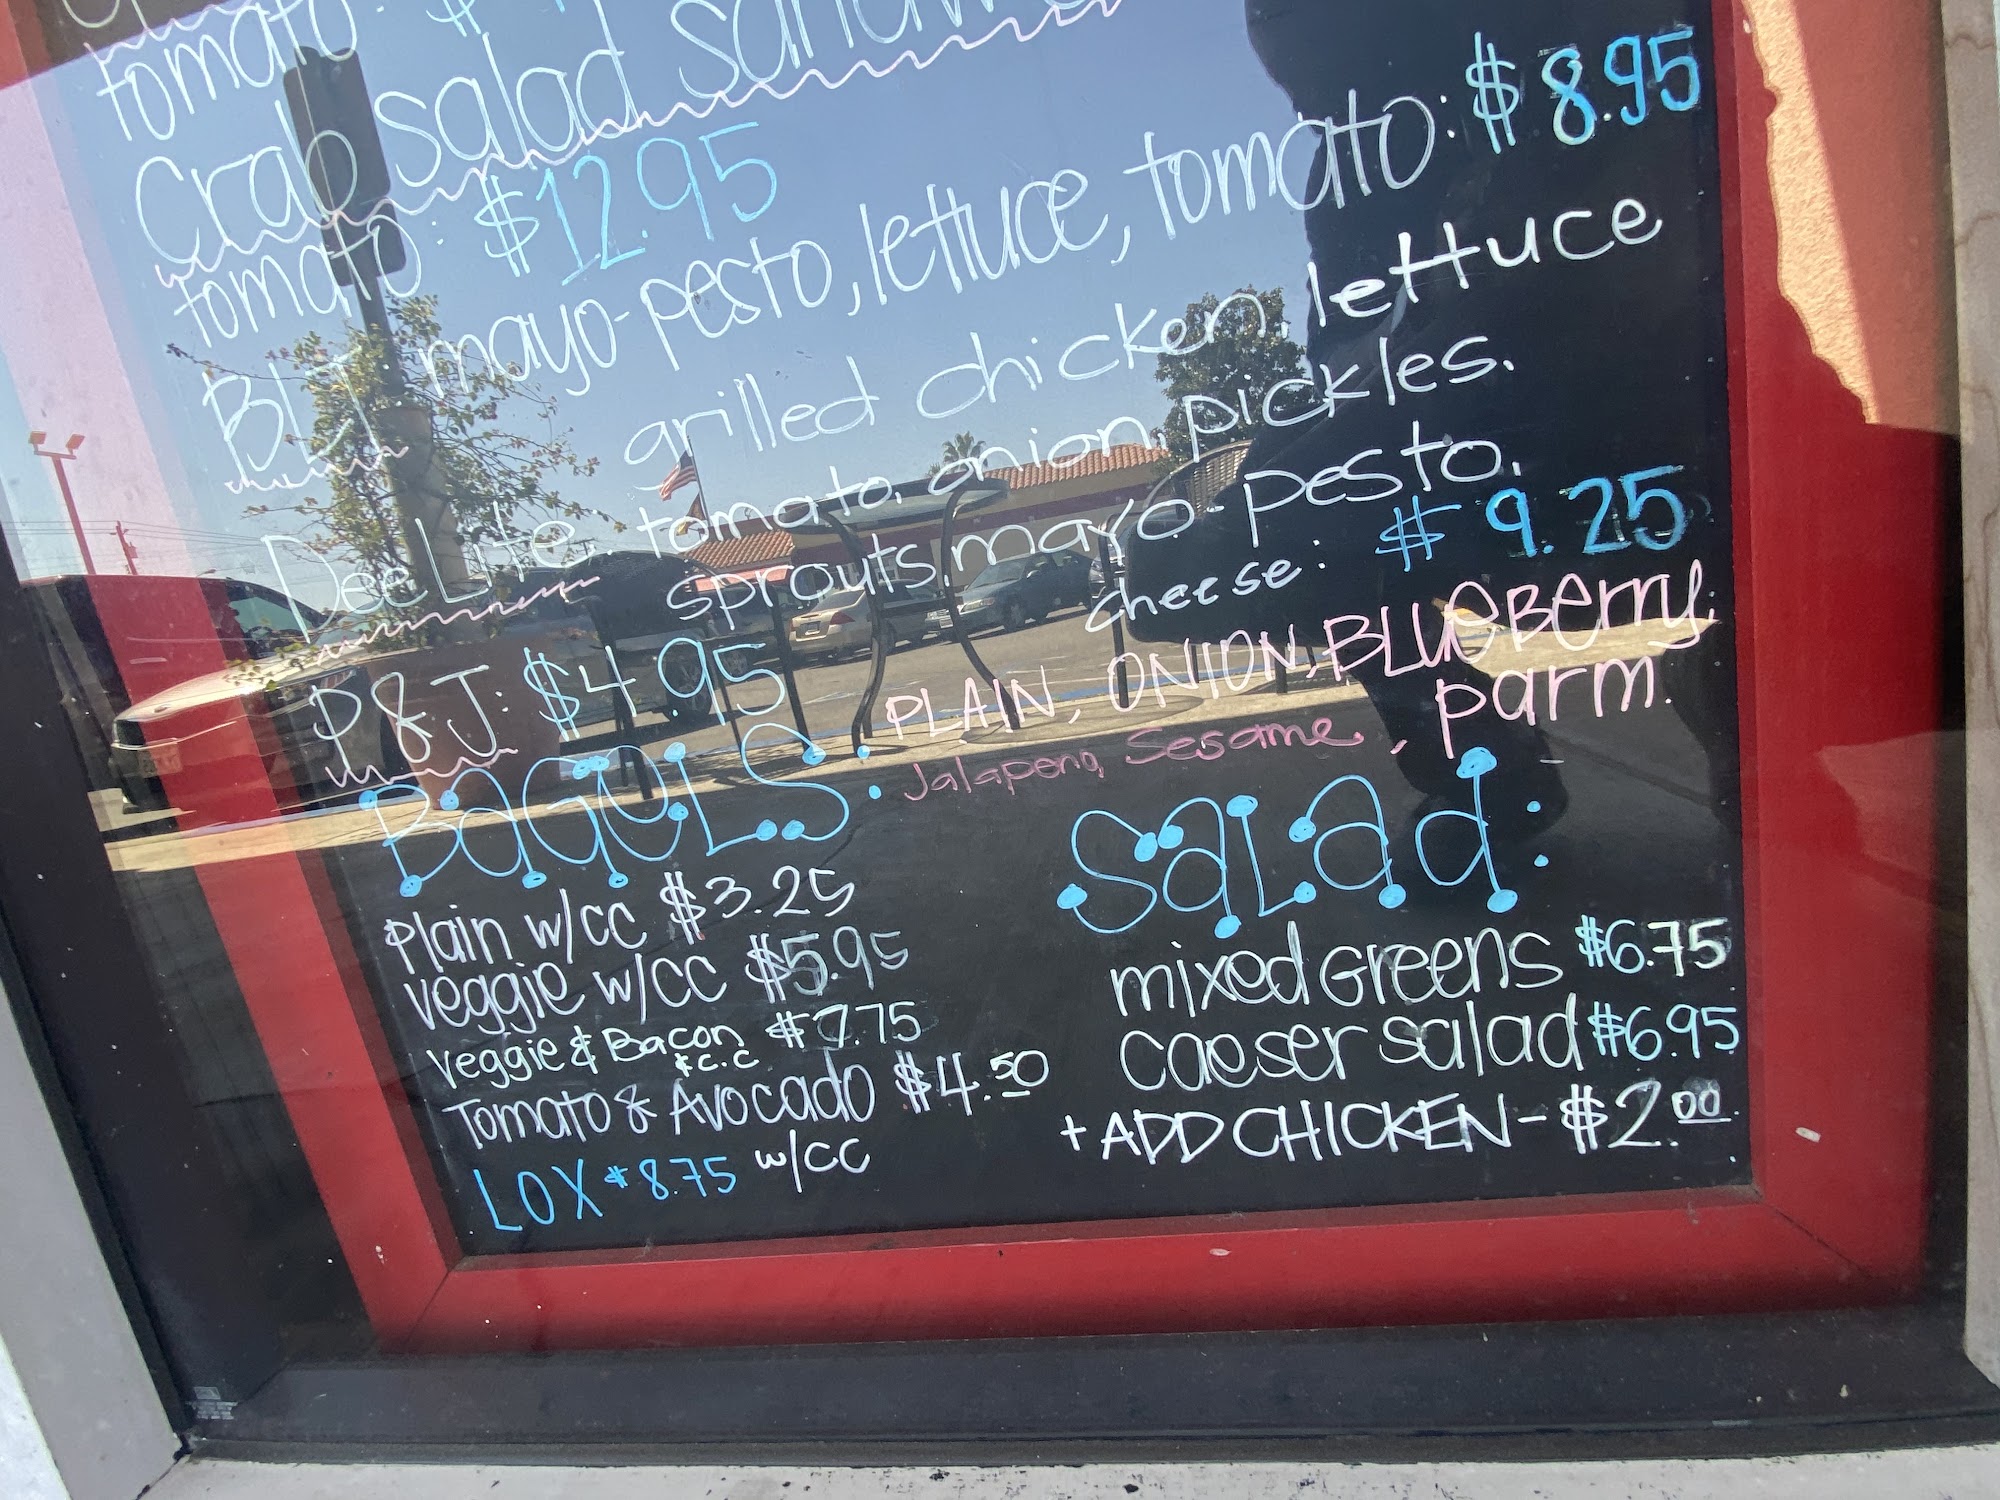 tomato: $
Crab salad
tomato: $12.95
BLT: mayo-pesto, lettuce, tomato: $8.95
Dee Lite: grilled chicken, lettuce
tomato, onion, pickles,
sprouts, mayo-pesto,
cheese: $9.25
P&J: $4.95
BAGELS: PLAIN, ONION, BLUEBerry,
Jalapeno, Sesame, parm.
Plain w/cc $3.25
veggie w/cc $5.95
veggie & Bacon $7.75
& c.c
Tomato & Avocado $4.50
w/cc
LOX $8.75
SaLad:
mixed Greens $6.75
caeser salad $6.95
+ ADD CHICKEN - $2.00